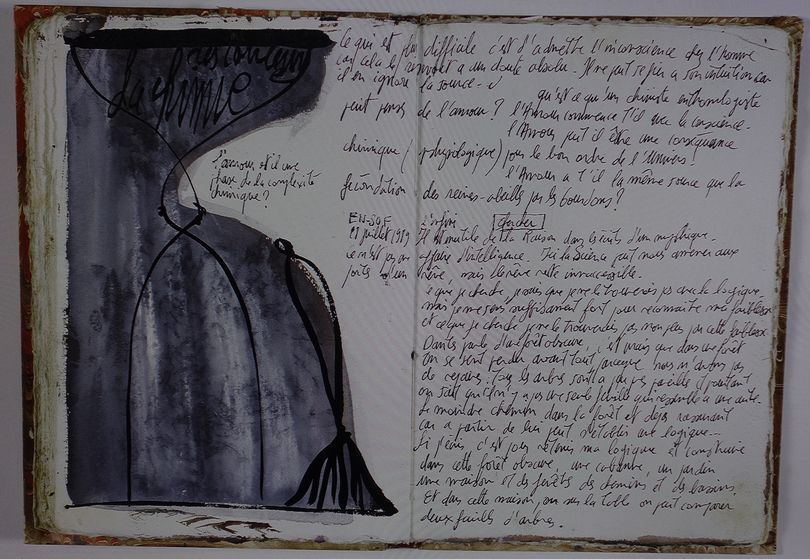 des couleurs
La chimie
L'amour est il une
phase de la complexité
chimique?
Ce qui est plus difficile c'est d'admettre l'inconscience chez l'homme
car cela le renvoit a un doute absolu. Il ne peut se fier a son intuition car
il en ignore la source.
qu'est ce qu'un chimiste enthomologiste
peut penser de l'amour? l'Amour commence t'il avec la conscience.
l'Amour peut il être une conséquence
chimique (physiologique) pour le bon ordre de l'Univers!
l'Amour a t'il la même source que la
fécondation des reines-abeilles par les bourdons?
EN-SOF l'infini chercher
11 juillet 1989 Il est inutile de la Raison dans les écrits d'un mystique.
ce n'est pas une affaire d'intelligence. Ici la science peut nous amener aux
portes d'un rêve mais le rêve reste innaccessible.
ce que je cherche, je sais que je ne le trouverais pas avec la logique
mais je me sens suffisament fort pour reconnaitre ma faiblesse
et ce que je cherche je ne le trouverais pas non plus par cette faiblesse
Dante parle d'une forêt obscure, c'est vrai que dans une forêt
on se sent perdu avant tout parceque nous n'avons pas
de repaires. Tous les arbres sont a peu près pareils et pourtant
on sait qu'il n'y a pas une seule feuille qui ressemble a une autre.
Le moindre chemin dans la forêt est déjà rassurant
car a partir de lui peut s'établir une logique.
Si j'écris c'est pour retenir ma logique et construire
dans cette forêt obscure, une cabane, un jardin
une maison et des forêts des chemins et des bassins.
Et dans cette maison, sur la table on peut comparer
deux feuilles d'arbres.